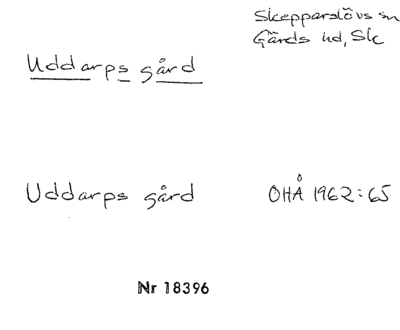 Skepparslövs sn
Gärds hd, Sk
Uddarps gård
Uddarps gård
OHÅ 1962:65
Nr 18396